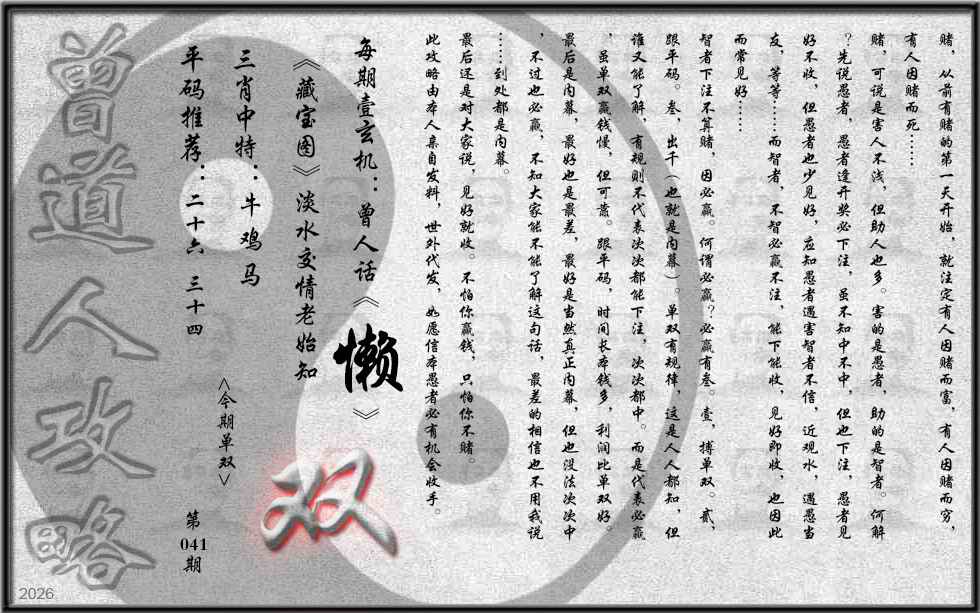 赌，从前有赌的第一天开始，就注定有人因赌而富，有人因赌而穷，
有人因赌而死……
赌，可说是害人不浅，但助人也多。害的是愚者，助的是智者。何解
？先说愚者，愚者逢开奖必下注，虽不知中不中，但也下注，愚者见
好不收，但愚者也少见好，应知愚者遇害智者不信，近观水，遇愚当
友，等等……而智者，不智必赢不注，能下能收，见好即收，也因此
而常见好……
智者下注不算赌，因必赢。何谓必赢？必赢有叁。壹，搏单双。贰，
跟平码。叁，出千（也就是内幕）。单双有规律，这是人人都知，但
谁又能了解，有规则不代表次次都能下注，次次都中。而是代表必赢
，虽单双赢钱慢，但可靠。跟平码，时间长本钱多，利润比单双好。
最后是内幕，最好也是最差，最好是当然真正内幕，但也没法次次中
，不过也必赢，不知大家能不能了解这句话，最差的相信也不用我说
……到处都是内幕。
最后还是对大家说，见好就收。不怕你赢钱，只怕你不赌。
此攻略由本人亲自发料，世外代发，如愿信本愚者必有机会收手。
每期壹玄机：曾人话《懒》
《藏宝图》淡水交情老始知
三肖中特：牛 鸡 马
平码推荐：二十六 三十四
<今期单双>
双
第
041
期
曾道人攻略
2026